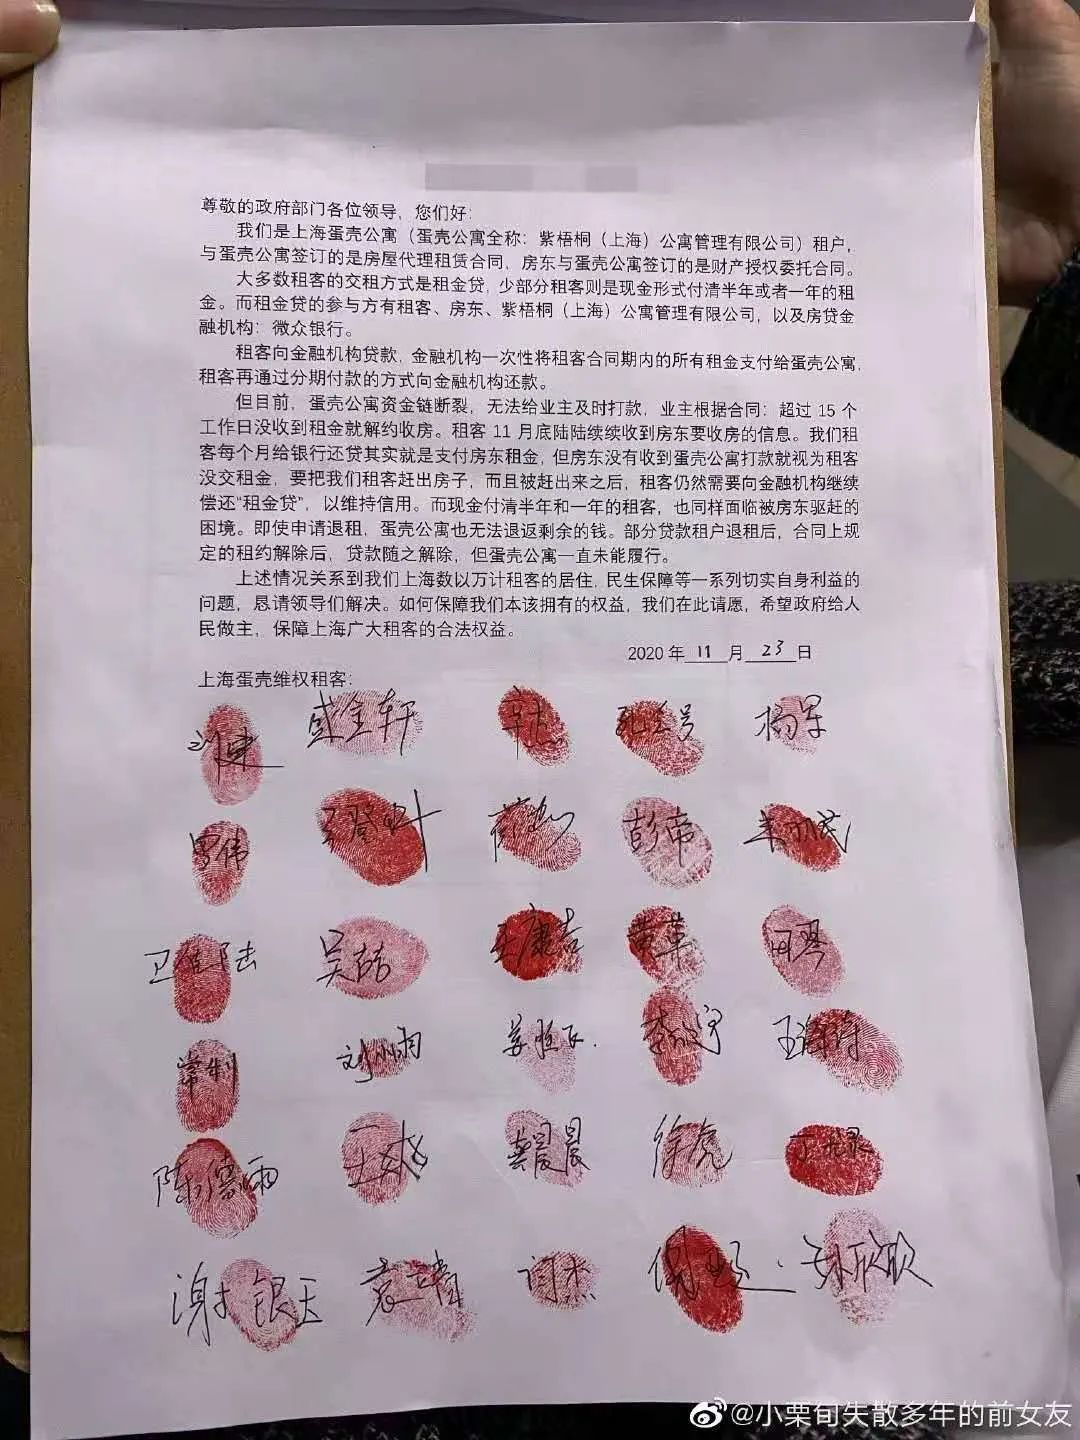 尊敬的政府部门各位领导，您们好：
我们是上海蛋壳公寓（蛋壳公寓全称：紫梧桐（上海）公寓管理有限公司）租户，
与蛋壳公寓签订的是房屋代理租赁合同，房东与蛋壳公寓签订的是财产授权委托合同。
大多数租客的交租方式是租金贷，少部分租客则是现金形式付清半年或者一年的租
金。而租金贷的参与方有租客、房东、紫梧桐（上海）公寓管理有限公司，以及房贷金
融机构：微众银行。
租客向金融机构贷款，金融机构一次性将租客合同期内的所有租金支付给蛋壳公寓，
租客再通过分期付款的方式向金融机构还款。
但目前，蛋壳公寓资金链断裂，无法给业主及时打款，业主根据合同：超过 15 个
工作日没收到租金就解约收房。租客 11 月底陆陆续续收到房东要收房的信息。我们租
客每个月给银行还贷其实就是支付房东租金，但房东没有收到蛋壳公寓打款就视为租客
没交租金，要把我们租客赶出房子，而且被赶出来之后，租客仍然需要向金融机构继续
偿还“租金贷”，以维持信用。而现金付清半年和一年的租客，也同样面临被房东驱赶的
困境。即使申请退租，蛋壳公寓也无法退返剩余的钱。部分贷款租户退租后，合同上规
定的租约解除后，贷款随之解除，但蛋壳公寓一直未能履行。
上述情况关系到我们上海数以万计租客的居住，民生保障等一系列切实自身利益的
问题，恳请领导们解决。如何保障我们本该拥有的权益，我们在此请愿，希望政府给人
民做主，保障上海广大租客的合法权益。
2020 年 11 月 23 日
上海蛋壳维权租客：
盛金轩 杨军
罗伟 彭帝
吴皓 王康吉 黄革 田琴
常利 王海涛
陈德雨 王爽 龚晨晨 徐虎
谢银玉 闫杰
@小栗旬失散多年的前女友